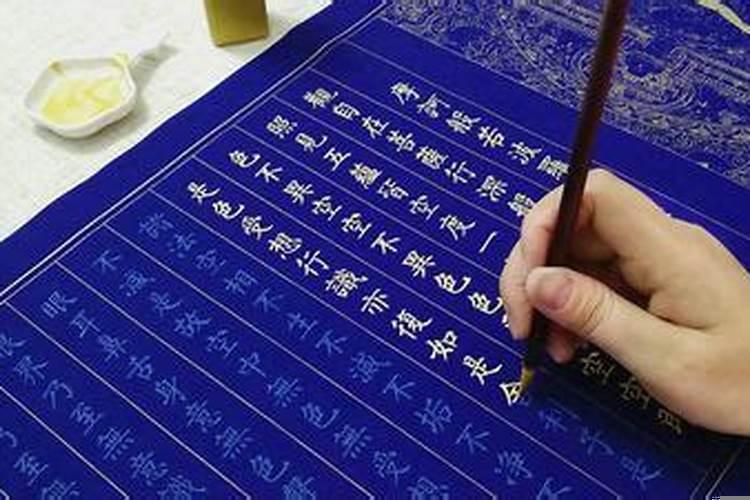 摩訶般若波羅
觀自在菩薩行深般
照見五蘊皆空度一
色不異空空不異色色空空即
是色受想行識亦復如是舍利子是
諸法空相不生不滅不垢不淨不
不減是故空中無色無受想
眼耳鼻舌身意無色
眼界乃至無意識
乃至無